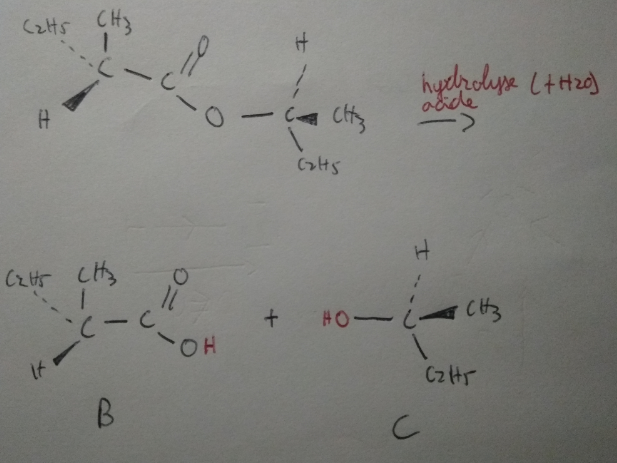 C2H5 CH3
C C O H
H O C CH3
C2H5
hydrolyse (+H2O)
acide
C2H5 CH3 O
C C OH
H
+
H
HO C CH3
C2H5
B
C